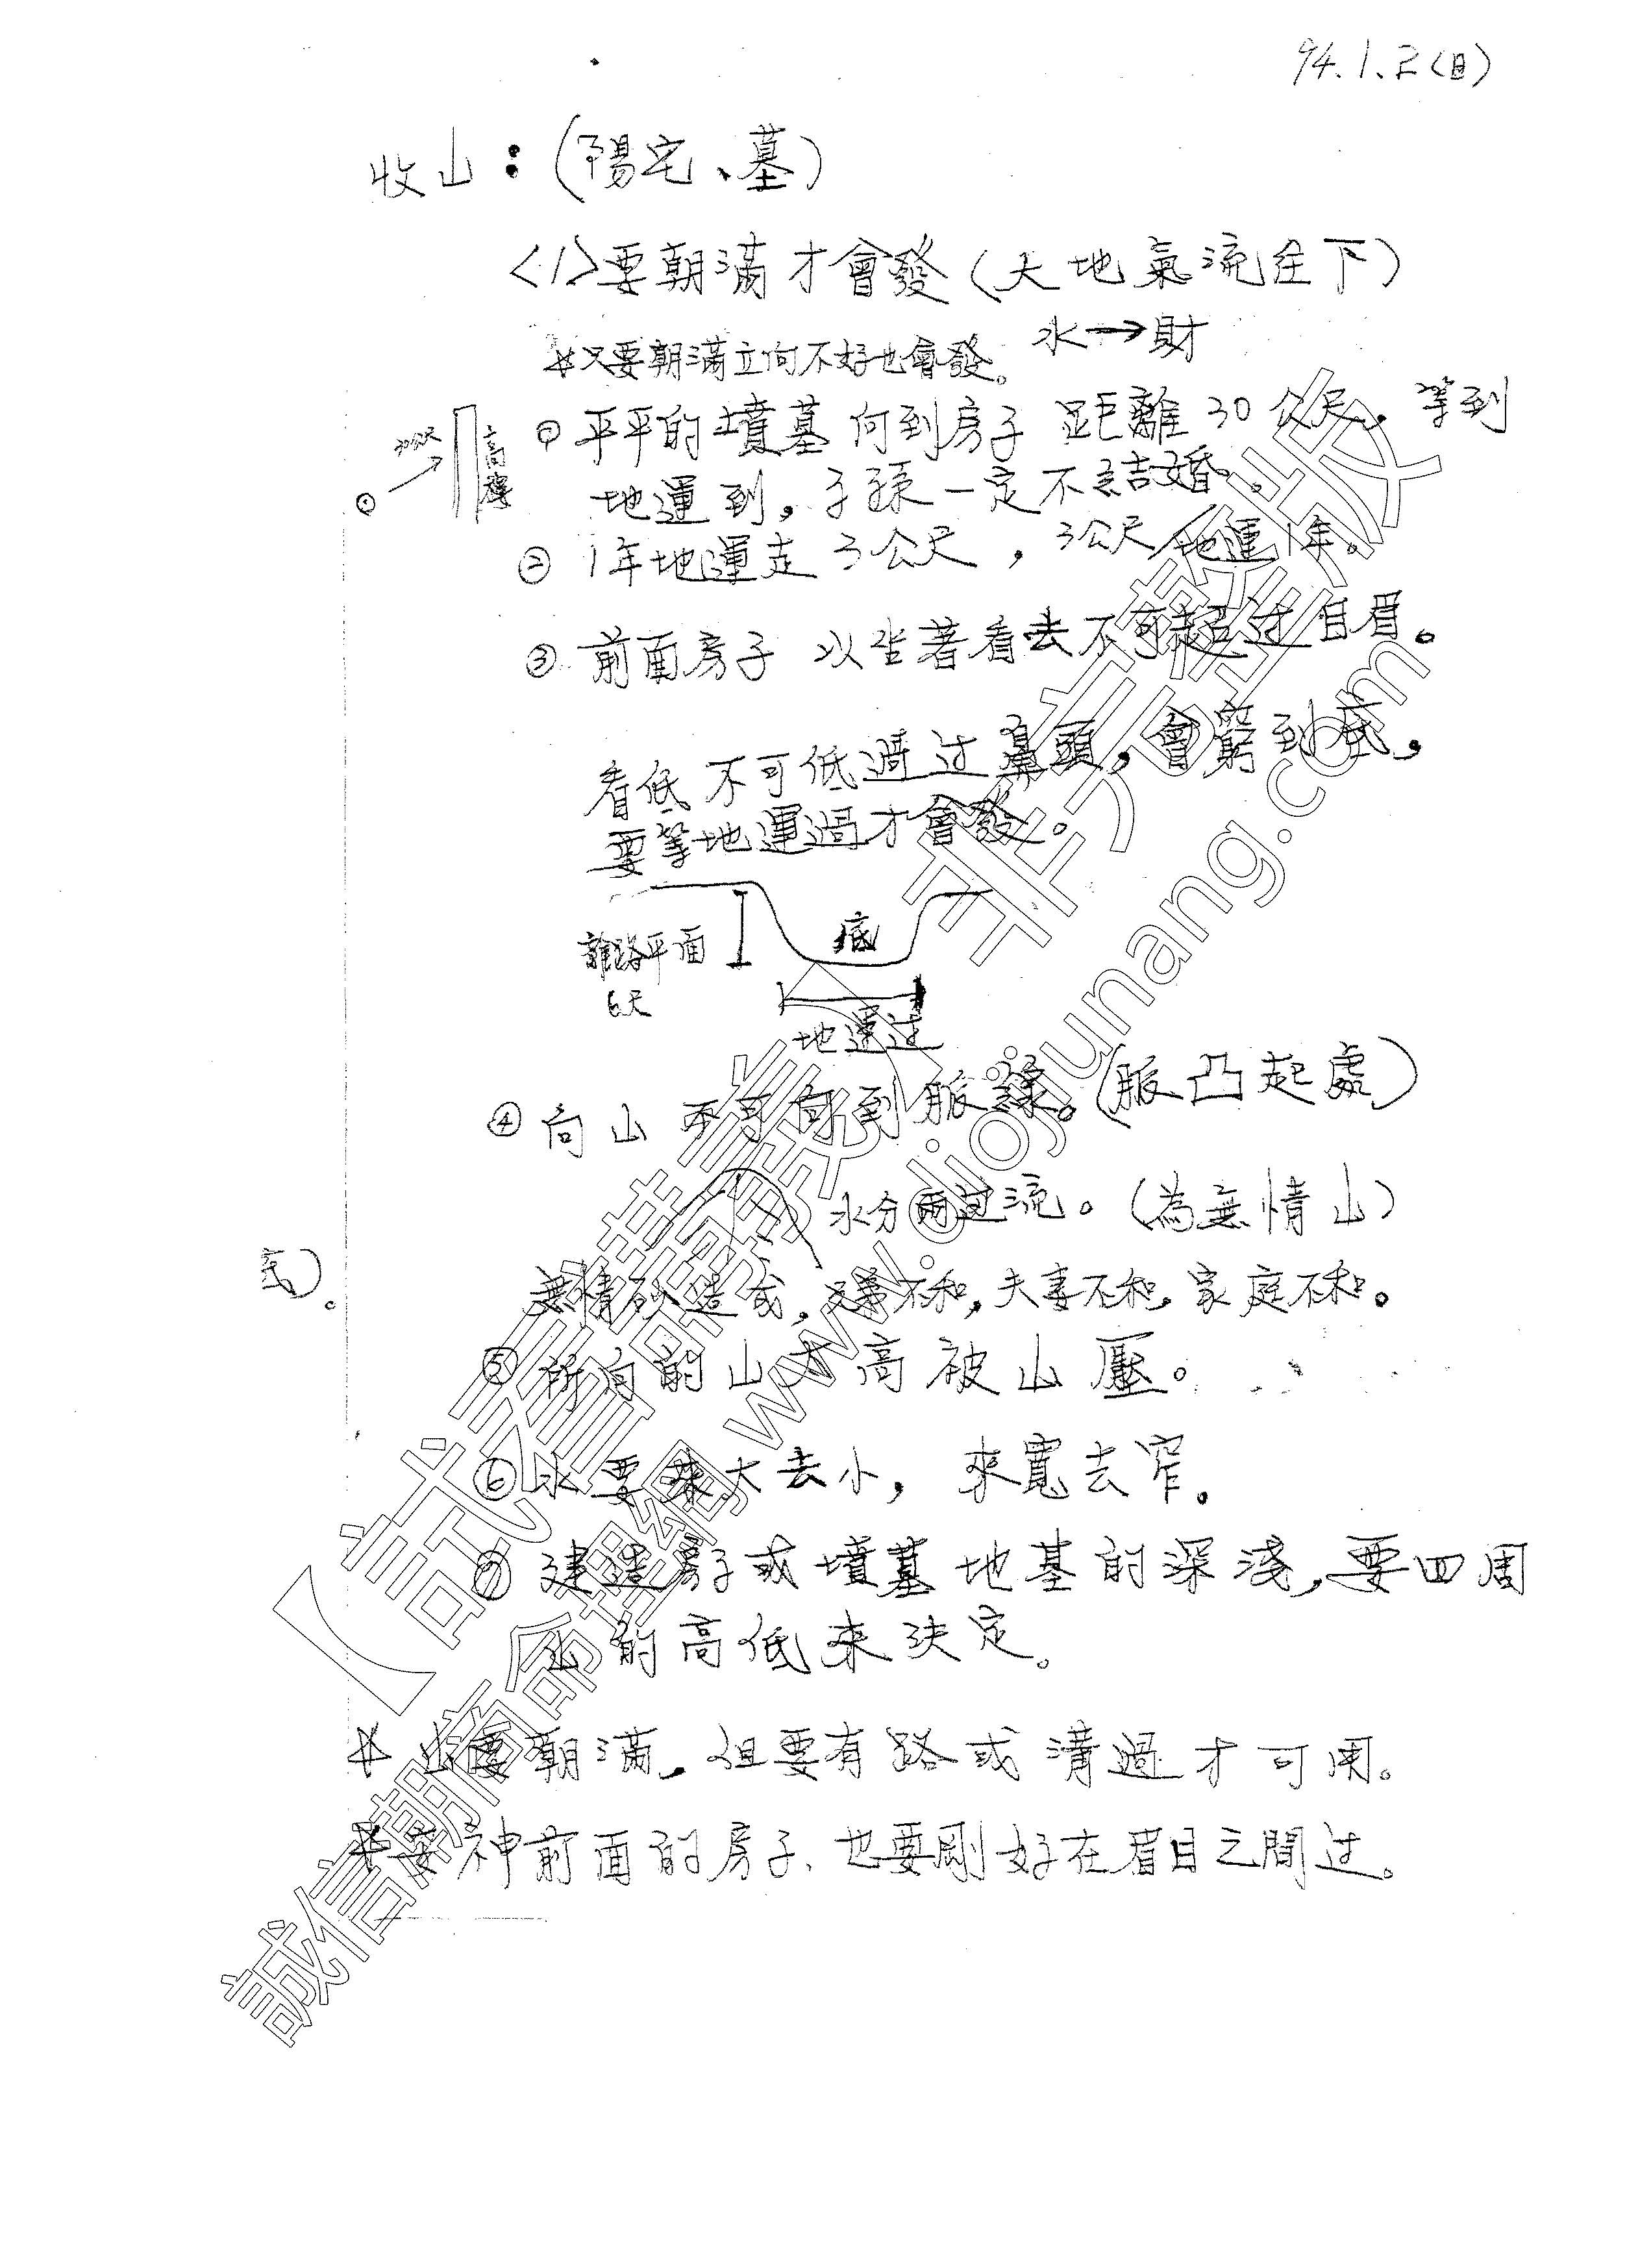 94.1.2(日)
收山:(陽宅、墓)
<1>要朝滿才會發(天地氣流往下)
*只要朝滿立向不好也會發。 水→財
①平平的墳墓向到房子 距離30公尺,等到
地運到,子孫一定不結婚。
① 30公尺 高樓
②1年地運走3公尺,3公尺/地運1年。
③前面房子 以坐著看去不可超过目眉。
看低 不可低過过鼻頭,會窮到底,
要等地運過才會發。
離路平面
6尺
底
地運过
④向山 不可向到脈線。(脈凸起處)
水分兩边流。(為無情山)
無情 造成, 不和,夫妻不和,家庭不和。
⑤所向的山太高被山壓。
⑥水要來大去小,來寬去窄。
⑦建造房子或墳墓地基的深淺,要四周
山的高低來決定。
*山要朝滿,但要有路或溝過才可用。
*安神前面的房子、也要剛好在眉目之間过。
【試看講義】非完整版
誠信潮商命理網 www.diojiunang.com